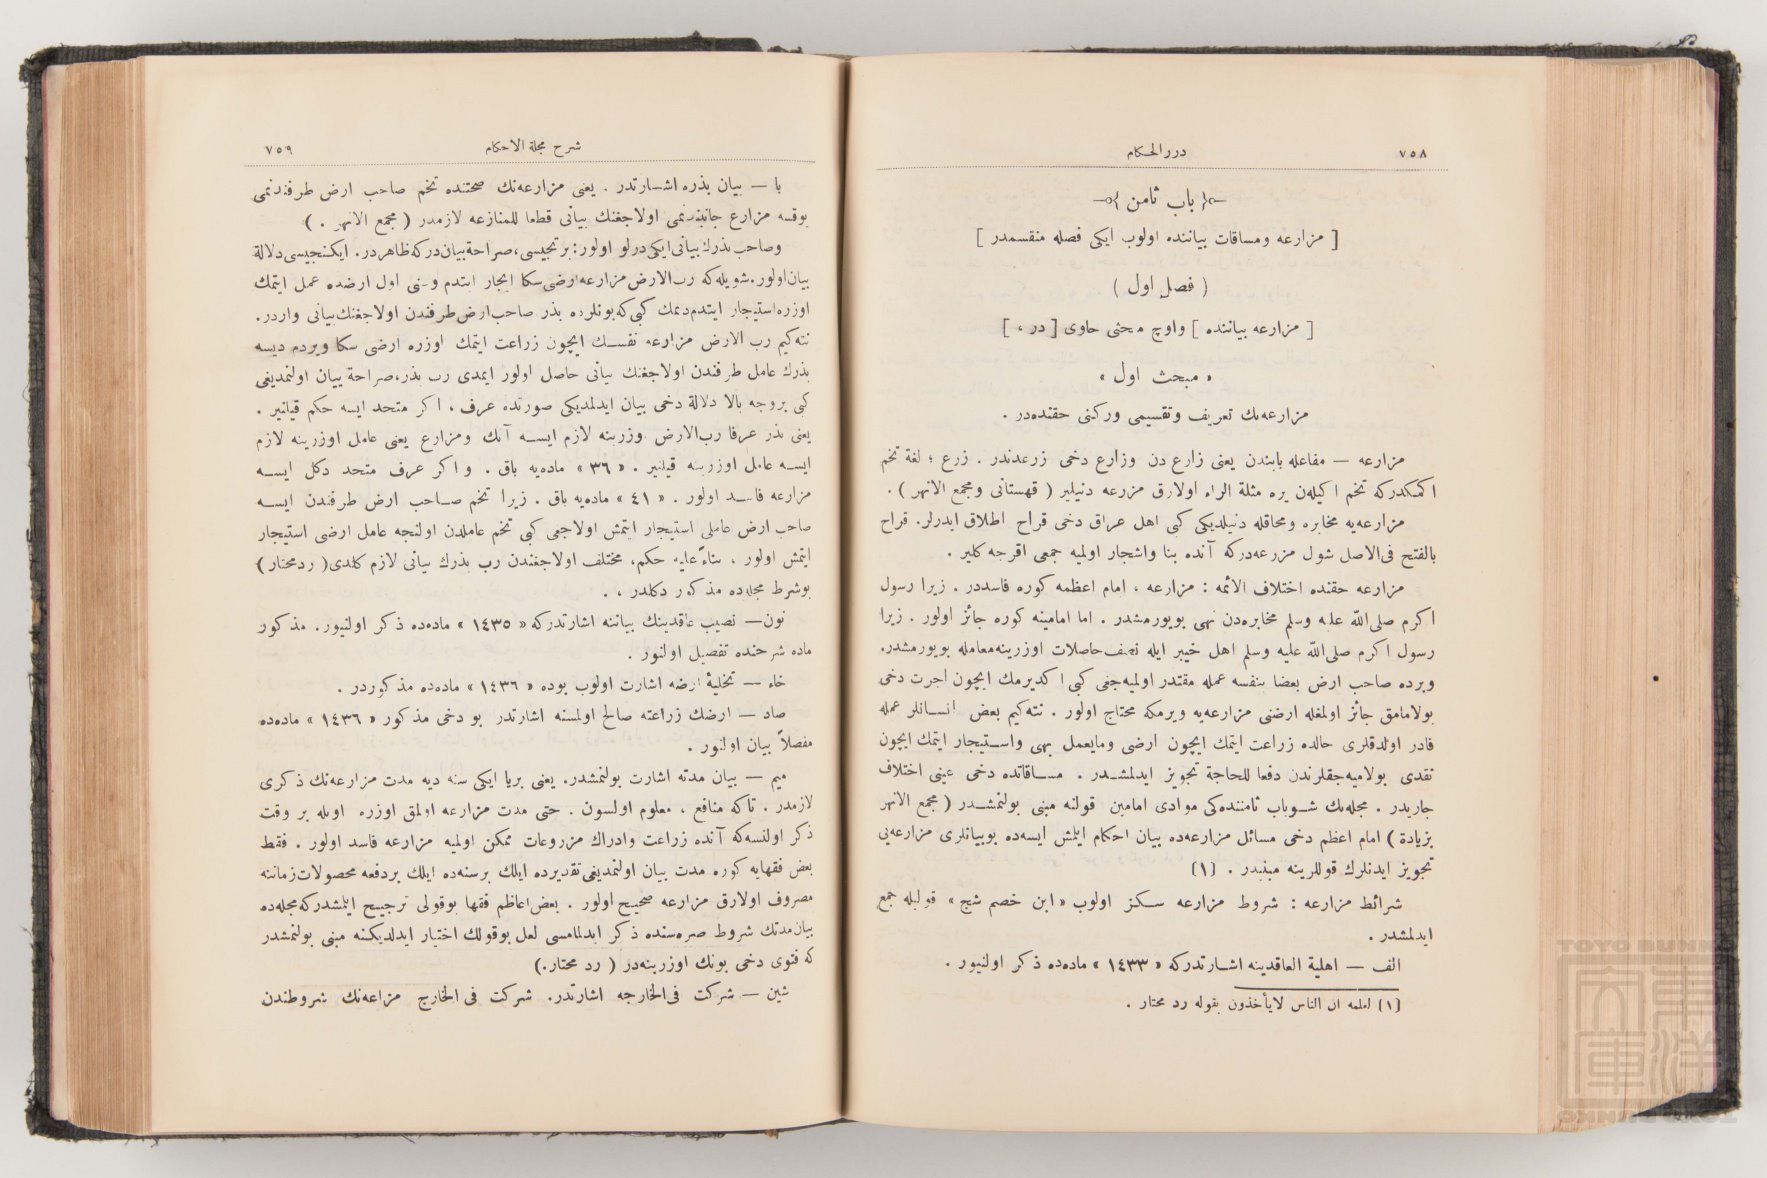 ٧٥٨
درر الحكام
باب ثامن
[ مزارعه ومساقات بياننده اولوب ايكى فصله منقسمدر ]
( فصل اول )
[ مزارعه بياننده ] واوچ مبحثى حاوى [ در ، ]
« مبحث اول »
مزارعه‌نك تعريف وتقسيمى وركنى حقنده‌در .
مزارعه — مفاعله بابندن يعنى زارع دن وزارع دخى زرعدندر . زرع ؛ لغة تخم
اكمكدركه تخم اكيلن يره مثلة الراء اولارق مزرعه دنيلير ( قهستانى ومجمع الانهر ) .
مزارعه‌يه مخابره ومحاقله دنيلديكى كبى اهل عراق دخى قراح اطلاق ايدرلر. قراح
بالفتح فى‌الاصل شول مزرعه‌دركه آنده بنا واشجار اولميه جمعى اقرحه كلير .
مزارعه حقنده اختلاف الأئمه : مزارعه ، امام اعظمه كوره فاسددر . زيرا رسول
اكرم صلى‌اللّه عليه وسلم مخابره‌دن نهى بويورمشدر . اما امامينه كوره جائز اولور . زيرا
رسول اكرم صلى‌اللّه عليه وسلم اهل خيبر ايله نصف حاصلات اوزرينه معامله بويورمشدر.
وبرده صاحب ارض بعضا بنفسه عمله مقتدر اولميه‌جغى كبى اكديرمك ايچون اجرت دخى
بولامامق جائز اولمغله ارضنى مزارعه‌يه ويرمكه محتاج اولور . نته‌كيم بعض انسانلر عمله
قادر اولدقلرى حالده زراعت ايتمك ايچون ارضى ومايعمل بهى واستيجار ايتمك ايچون
نقدى بولاميه‌جقلرندن دفعا للحاجة تجويز ايدلمشدر . مساقاتده دخى عينى اختلاف
جاريدر . مجله‌نك شو باب ثامننده‌كى موادى امامين قولنه مبنى بولنمشدر ( مجمع الانهر
بزيادة ) امام اعظم دخى مسائل مزارعه‌ده بيان احكام ايلمش ايسه‌ده بو بيانلرى مزارعه‌يى
تجويز ايدنلرك قوللرينه مبنيدر . [١]
شرائط مزارعه : شروط مزارعه سكز اولوب « ابن خصم شيح » قوليله جمع
ايدلمشدر .
الف — اهلية العاقدينه اشارتدركه « ١٤٣٣ » ماده‌ده ذكر اولنيور .
[١] لعلمه ان الناس لايأخذون بقوله رد محتار .
شرح مجلة الاحكام
٧٥٩
با — بيان بذره اشارتدر . يعنى مزارعه‌نك صحتنده تخم صاحب ارض طرفندنمى
يوقسه مزارع جانبندنمى اولاجغنك بيانى قطعا للمنازعه لازمدر ( مجمع الانهر . )
وصاحب بذرك بيانى ايكى درلو اولور: برنجيسى، صراحة بيان‌دركه ظاهردر. ايكنجيسى دلالة
بيان اولور. شويله‌كه رب‌الارض مزارعه ارضى سكا ايجار ايتدم وبنى اول ارضده عمل ايتمك
اوزره استيجار ايتدم ديمك كبى كه بونلرده بذر صاحب ارض طرفندن اولاجغنك بيانى واردر.
نته‌كيم رب الارض مزارعه نفسك ايچون زراعت ايتمك اوزره ارضى سكا ويردم ديسه
بذرك عامل طرفندن اولاجغنك بيانى حاصل اولور ايمدى رب بذر، صراحة بيان اولنمديغى
كبى بروجه بالا دلالة دخى بيان ايدلمديكى صورتده عرف ، اكر متحد ايسه حكم قيلنير .
يعنى بذر عرفا رب‌الارض اوزرينه لازم ايسه آنك ومزارع يعنى عامل اوزرينه لازم
ايسه عامل اوزرينه قيلنير . « ٣٦ » ماده‌يه باق . واكر عرف متحد دكل ايسه
مزارعه فاسد اولور . « ٤١ » ماده‌يه باق . زيرا تخم صاحب ارض طرفندن ايسه
صاحب ارض عاملى استيجار ايتمش اولاجغى كبى تخم عاملدن اولنجه عامل ارضى استيجار
ايتمش اولور . بناءً عليه حكم، مختلف اولاجغندن رب بذرك بيانى لازم كلدى ( ردمحتار )
بوشرط مجله‌ده مذكور دكلدر ، .
نون — نصيب عاقدينك بياننه اشارتدركه « ١٤٣٥ » ماده‌ده ذكر اولنيور. مذكور
ماده شرحنده تفصيل اولنور .
خاء — تخلية ارضه اشارت اولوب بوده « ١٤٣٦ » ماده‌ده مذكوردر .
صاد — ارضك زراعته صالح اولمسنه اشارتدر بو دخى مذكور « ١٤٣٦ » ماده‌ده
مفصلاً بيان اولنور .
ميم — بيان مدته اشارت بولنمشدر. يعنى بر يا ايكى سنه ديه مدت مزارعه‌نك ذكرى
لازمدر . تاكه منافع ، معلوم اولسون . حتى مدت مزارعه اولمق اوزره اويله بر وقت
ذكر اولنسه‌كه آنده زراعت وادراك مزروعات ممكن اولميه مزارعه فاسد اولور . فقط
بعض فقهايه كوره مدت بيان اولنمديغى تقديرده ايلك برسنه‌ده ايلك بردفعه محصولات زماننه
مصروف اولارق مزارعه صحيح اولور . بعض اعاظم فقها بوقولى ترجيح ايلمشدركه مجله‌ده
بيان مدتك شروط صره‌سنده ذكر ايدلمامسى لعل بوقولك اختيار ايدلديكنه مبنى بولنمشدر
كه فتوى دخى بونك اوزرينه‌در ( رد محتار.)
شين — شركت فى‌الخارجه اشارتدر. شركت فى‌الخارج مزاعه‌نك شروطندن
TOYO BUNKO
東洋文庫